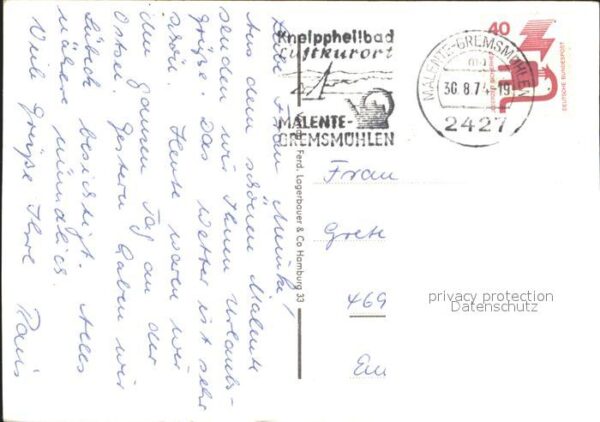 Liebe Frau Münke!
Aus dem schönen Malente
senden wir Ihnen Urlaubs-
grüße. Das Wetter ist sehr
schön. Heute waren wir
den ganzen Tag an der
Ostsee. Gestern haben wir
Lübeck besichtigt. Alles
nähere mündlich.
Viele Grüße Ihre
Ferd. Lagerbauer & Co Hamburg 33
Kneippheilbad
Luftkurort
MALENTE-
GREMSMÜHLEN
MALENTE-GREMSMÜHLEN
30.8.74-19
2427
40
DEUTSCHE BUNDESPOST
Frau
Grete
469
privacy protection
Datenschutz